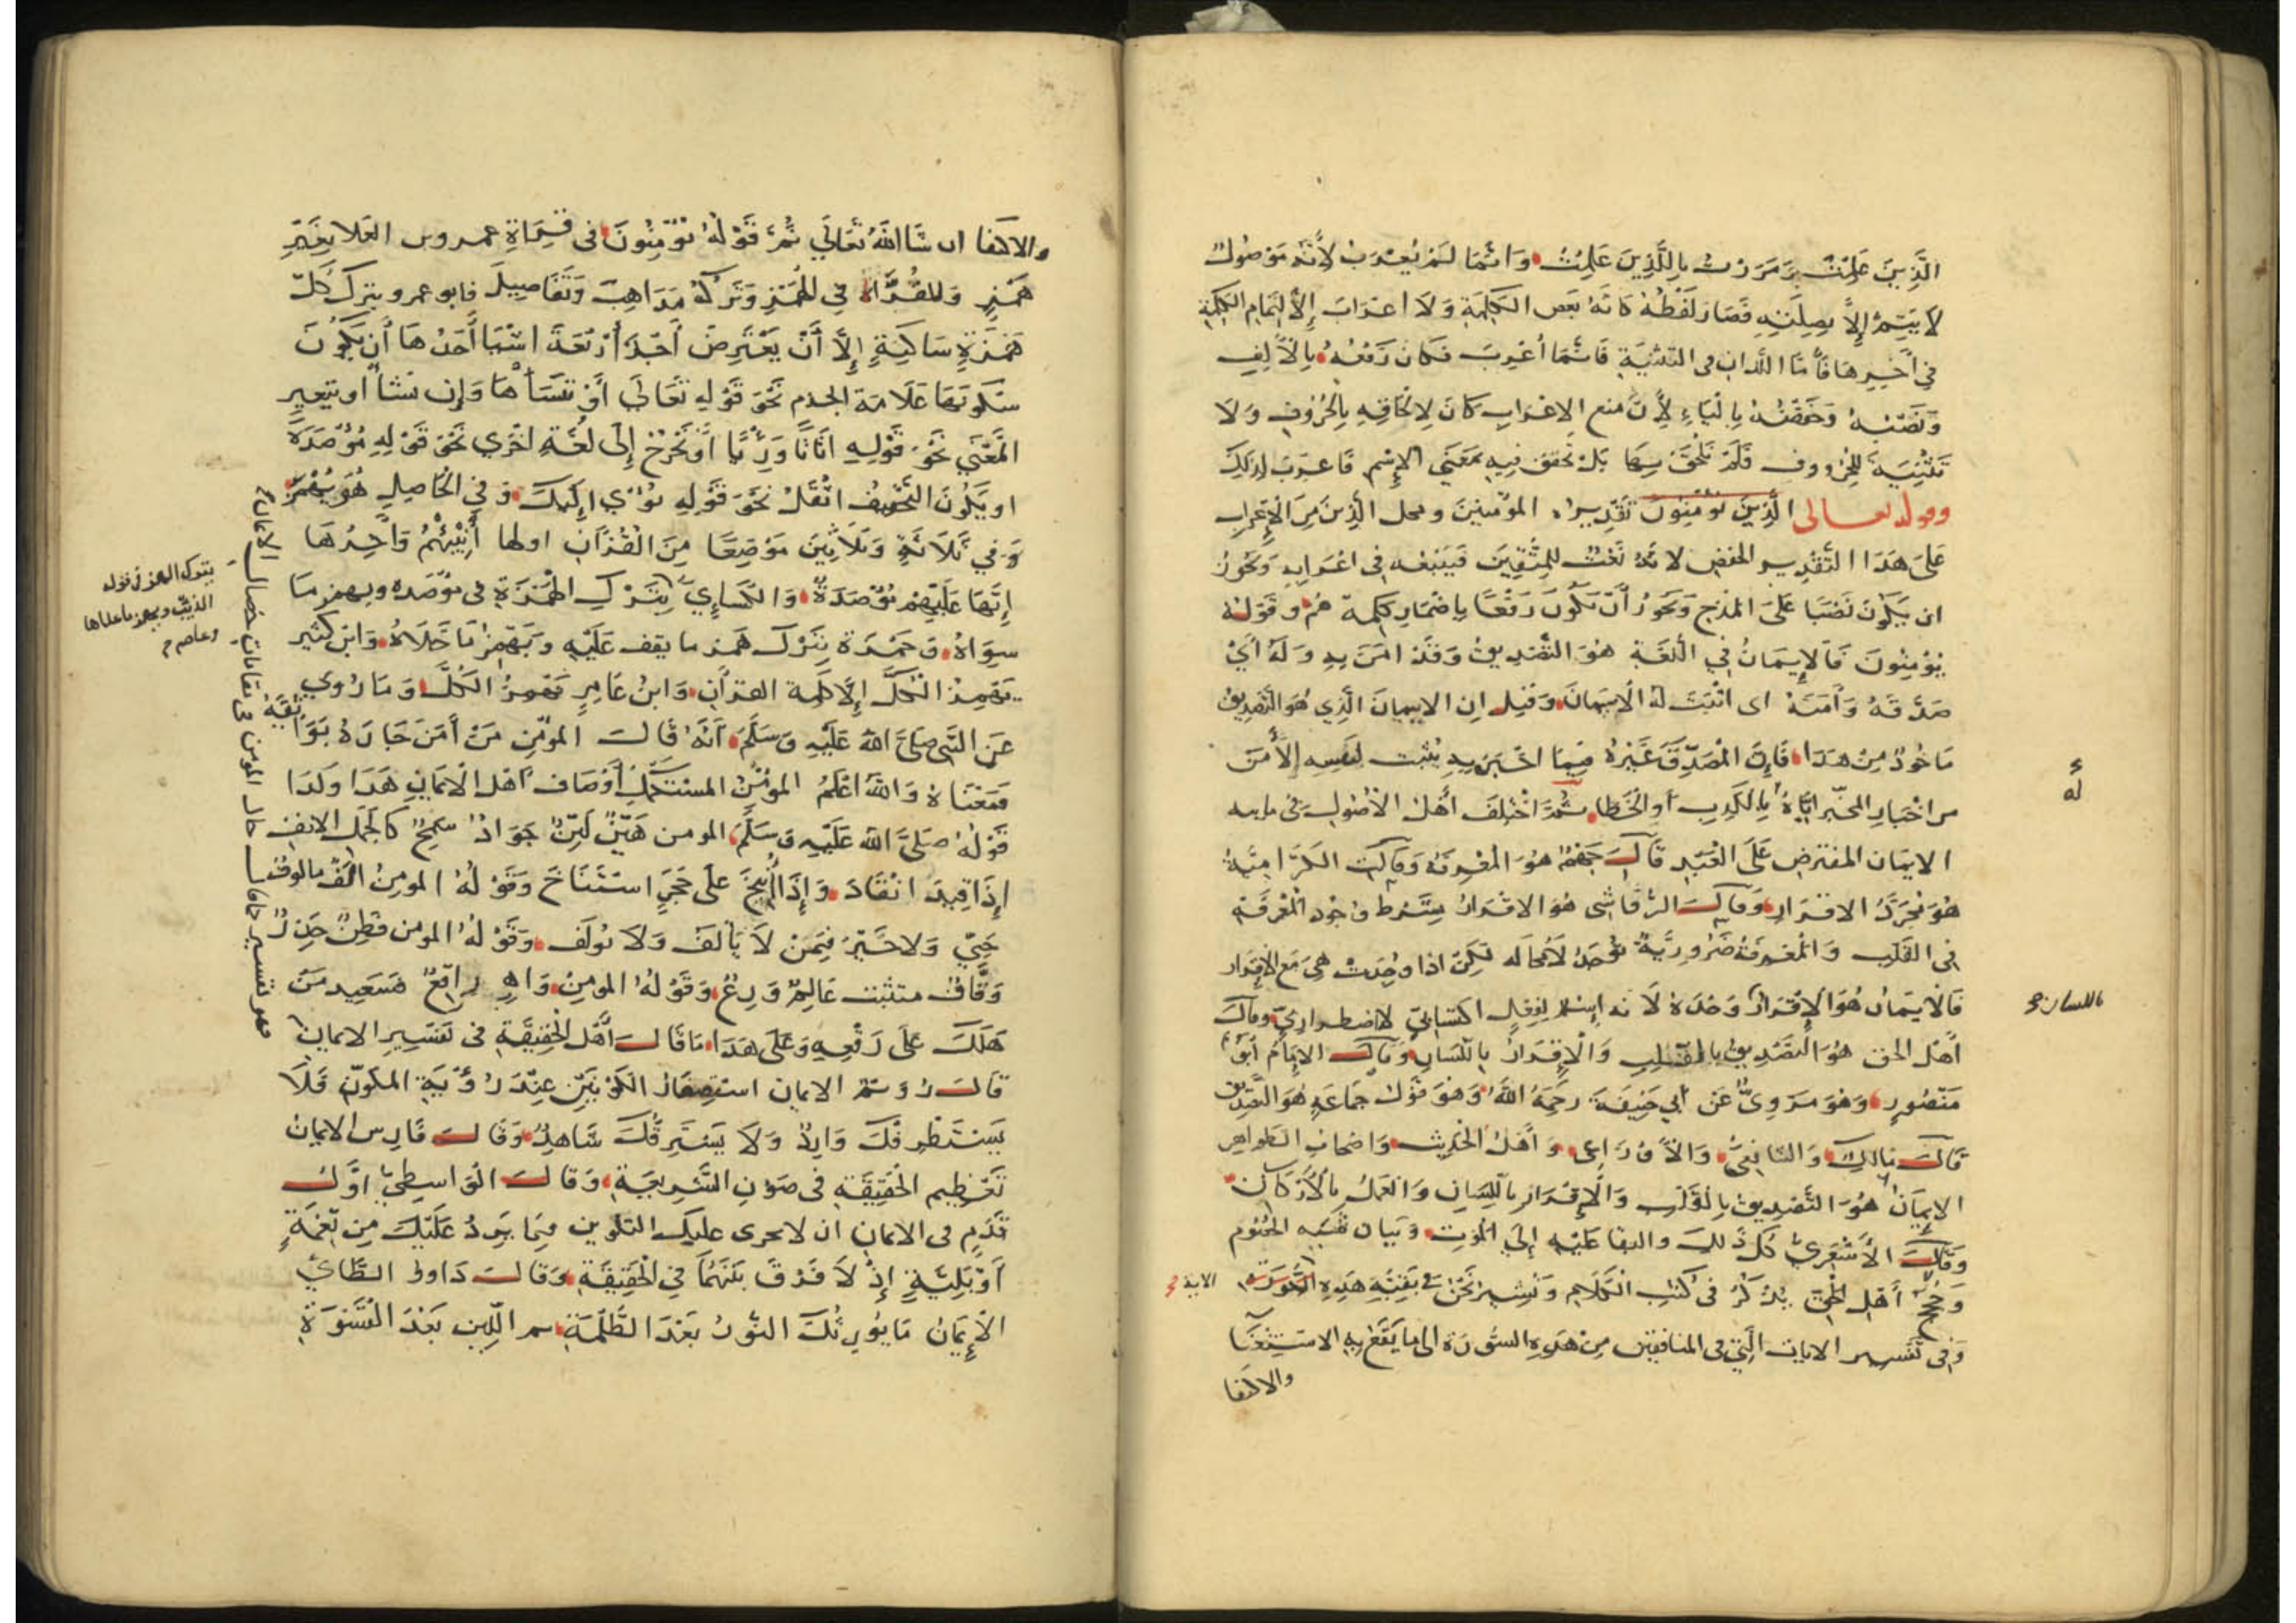 الَّذِينَ عَلِمْتُ وَمَرَرْتُ بِالَّذِينَ عَلِمْتُ وَانَّمَا لَمْ يُعْرَبْ لِأَنَّهُ مَوْصُولٌ
لَا يَتِمُّ إِلَّا بِصِلَتِهِ فَصَارَ لَفْظُهُ كَانَّهُ بَعْض الْكَلِمَةِ وَلَا اعْرَابَ إِلَّا لِتَمَامِ الْكَلِمَةِ
فِي آخِرِهَا فَأَمَّا اللَّذانِ في التَّثْنِيَةِ فَانَّمَا أُعْرِبَ فَكَانَ رَفْعُهُ بِالْأَلِفِ
وَنَصْبُهُ وَخَفْضُهُ بِالْيَاءِ لِأَنَّ منع الاعْرَابِ كَانَ لِإلْحَاقِهِ بِالْحُرُوفِ وَلَا
تَثْنِيَةَ لِلْحُرُووف فَلَمْ تَلْحَقْ بِهَا بَلْ تَحَقَّقَ فِيهِ مَعْنَى الْإِسْمِ فَاعرِبَ لِذَلِكَ
وقوله تعالى الَّذِينَ يُؤْمِنُونَ تَقْدِيره المُؤْمِنِينَ ومحل الَّذِينَ مِنَ الْإِعْرَابِ
عَلَى هَذَا التَّقْدِيرِ الخفض لِأَنَّهُ نَعْتٌ لِلْمُتَّقِينَ فَيَتْبَعُهُ في اعْرَابِهِ وَيَجُوزُ
ان يَكُونَ نَصْبًا عَلَى المَدْحِ وَيَجُوزُ أَنْ يَكُونَ رَفْعًا بِإِضْمَارِ كَلِمَة هُمْ وقَوْلهُ
يُؤْمِنُونَ فَالْإِيمَانُ فِي اللُّغَةِ هُوَ التَّصْدِيقُ وَقَدْ امَنَ بِهِ وَلَهُ أَيْ
صَدَّقَهُ وَآمَنَهُ اى اثْبَتَ لَهُ الْأَمَانَ وَقِيلَ ان الايمَانَ الَّذِي هُوَ التَّصْدِيقُ
مَاخُوذٌ مِنْ هَذَا فَإِنَّ الْمُصَدِّقَ غَيْرَهُ فِيمَا اخْبَرَ بِهِ يُثْبِت لِنَفْسِهِ الْأَمْنَ
من اخْبَارِ المخْبر ايَّاهُ بِالْكَذِبِ أَوالْخَطَا ثُمَّ اخْتَلَفَ أَهْلُ الْأُصُولِ فى مايـه
ءَ له
الايمَان المفترض عَلَى الْعَبْدِ قَالَ جَهْمٌ هُوَ الْمَعْرِفَةُ وَقَالَت الْكَرَّامِيَّةُ
هُوَ مُجَرَّدُ الاقْرَارِ وَقَالَ الرَّقَاشِى هُوَ الاقْرَارُ بِشَرْط وُجُودِ الْمَعْرِفَةِ
فِي القَلْبِ وَالْمَعْرِفَةُ ضَرُورِيَّةٌ تُوجَدُ لَا مُحَالَه لَكِنْ اذا وُجِدَتْ هِيَ مَعَ الْإِقْرَار
باللسان صح
فَالايمَان هُوَ الْإِقْرَارُ وَحْدَهُ لَانه إِسْمٌ لِفِعْلٍ اكتسَابِيٍّ لا ضطراريٍّ وقَالَ
أَهْل الحق هُوَ التَّصْدِيقُ بِالْقَلبِ وَالْإِقْرَارُ بِاللِّسَانِ وَقَالَ الإِمَامُ أَبُو
مَنْصُورٍ وَهُوَ مَرْوِيٌّ عَنْ أَبِي حَنِيفَةَ رَحِمَهُ اللَّهُ وَهُوَ قَوْلُ جَمَاعَةٍ هُوَ التَّصْدِيق
قَالَ مَالِكٌ وَالشَّافِعِيُّ وَالْأَوْزَاعِى وَأَهْلُ الْحَدِيثِ وَاصْحَابُ الظواهِرِ
الإِيمَانُ هُوَ التَّصْدِيقُ بِالْقَلْبِ وَالْإِقْرَار بِاللِّسَانِ وَالْعَمَلُ بِالْأَرْكَانِ
وَقَالَ الْأَشْعَرِيُّ كُل ذَلِكَ والبقا عَلَيْهِ إِلَى الْمَوْتِ وَبَيَان شُبَهِ الخُصُوم
وَحُجَجُ أَهْلِ الْحَقِّ يُذْكَرُ فى كُتُبِ الْكَلَامِ وَنُشِيرُ نَحْنُ فِي بَقِيَّةِ هَذِهِ السُّورَةِ
الاية صح
وَفى تَفْسِير الايات الَّتِى في المنافِقِين مِنْ هَذِهِ السُّورَة الى مَا يَقَعُ بِهِ الاسْتِغْنَا
والاكتفا
والاكتفا ان شَا اللَّهُ تَعَالَى ثُمَّ قَوْلُهُ يُؤْمِنُونَ فى قِرَاةِ عمرو بن العَلا بِغَيْرِ
هَمْزٍ وَلِلْقُرَّاءِ فِي الْهَمْزِ وَتَرْكِهُ مَذَاهِبَ وَتَفَاصِيل فابو عمرو يترك كُلَّ
هَمْزَةٍ سَاكِنَةٍ إِلَّا أَنْ يَعْتَرِضَ أَحَدُ أَرْبَعَةِ اشْيَا أَحَدُهَا أَنْ يَكُونَ
سُكُونَهَا عَلَامَةَ الجزم نَحْوَ قَوْلِهِ تَعَالَى أَوْ نَنْسَأْهَا وَإِن نَشأ او يتغير
الْمَعْنَى نَحْوَ قَوْلِهِ اثَاثًا وَرِئْيًا أَوْ تَخْرُج إِلَى لُغَةٍ اخْرَى نَحْوَ قَوْلِهِ مُؤْصَدَةٌ
او يَكُونَ التَّخْفِيفُ اثْقَلْ نَحْوَ قَوْلِهِ تُؤْوِي إِلَيْكَ وَفِي الْحَاصِلِ هُوَ يَهْمِزُ
وَفِي ثَلَاثَةٍ وَثَلَاثِينَ مَوْضِعًا مِنَ الْقُرْآنِ اولها أَنْبِئْهُمْ وَآخِرُهَا
إِنَّهَا عَلَيْهِمْ مُؤْصَدَةٌ وَالْكِسَاءِيُّ بِتَرْكِ الْهَمْزَةِ فى مُؤْصَده ويهمز مَا
يترك الهمز فى قوله الذيب ويهمز ماعداها وعاصم
سِوَاهُ وَحَمْزَة يَتْرُك هَمْز ما يقف عَلَيْهِ وَيَهْمِزُ مَا خَلَاهُ وَابْن كَثِير
يَهْمِزُ الْكُلَّ إِلَّا كَلِمَة القرآن وَابْنُ عَامِرٍ يَهْمِزُ الْكُلَّ وَمَا رُوِي
عَنِ النَّبِي صَلَّى اللهُ عَلَيْهِ وَسَلَّمَ أَنَّهُ قَالَ المُؤْمِن مَنْ أَمِنَ جَارَهُ بَوَائِقَهُ
فَمَعْنَاهُ وَاللَّهُ اعْلَمُ المُؤْمِنُ المستكملُ أَوْصَاف اهْل الْايمَانِ هَذَا وَكَذَا
قَوْلُهُ صَلَّى اللَّهُ عَلَيْهِ وَسَلَّمَ المومن هَيِّنٌ لَيِّنٌ جَوَادٌ سَمِحٌ كَالْجَمَلِ الانِفِ
إِذَا قِيدَ انْقَادَ وَإِذَا أُنِيخَ عَلَى حَجَرٍ اسْتَنَاخَ وَقَوْلُهُ المومِنُ الْف مَالُوف
حَيِيّ وَلاخَيْرَ فِيمَنْ لَا يَأْلَف وَلَا يُولَف وَقَوْلُهُ المومن فَطِنٌ حَذِرٌ
وَقَّافٌ متثبت عَالِمٌ وَرِعٌ وَقَوْلُهُ المومِنُ وَاهٍ رَاقِعٌ فَسَعِيد مَنْ
هَلَكَ عَلَى رَقْعِهِ وَعَلَى هَذَا مَا قَالَ أَهْلُ الْحَقِيقَةِ فى تَفْسِيرِ الايمَانِ
قَالَ رُوَيْمٌ الايمان استصغَارُ الْكَوْنَيْنِ عِنْدَ رُؤْيَةِ المكَوِّن فَلَا
يَسْتَظْرِفُكَ وَارِدٌ وَلَا يَسْتَرِقُّكَ شَاهِدٌ وَقَالَ فَارِس الايمَانُ
تَعْظِيم الْحَقِيقَةِ فى صَوْنِ الشَّرِيعَةِ وَقَالَ الْوَاسِطِيُّ اوَّل
قَدَمٍ فى الايمان ان لا يجرى عليك التلوين فِيمَا يَرِدُ عَلَيْكَ مِن نِعْمَةٍ
أَوْ بَلِيَّةٍ إِذْ لَا فَرْقَ بَيْنَهُمَا فِي الْحَقِيقَةِ وَقَالَ دَاود الطَّائيّ
الْإِيمَانُ مَا يُورِثُكَ النُّورُ بَعْدَ الظُّلْمَةِ ثم اللِّين بَعْدَ الْقَسْوَةِ